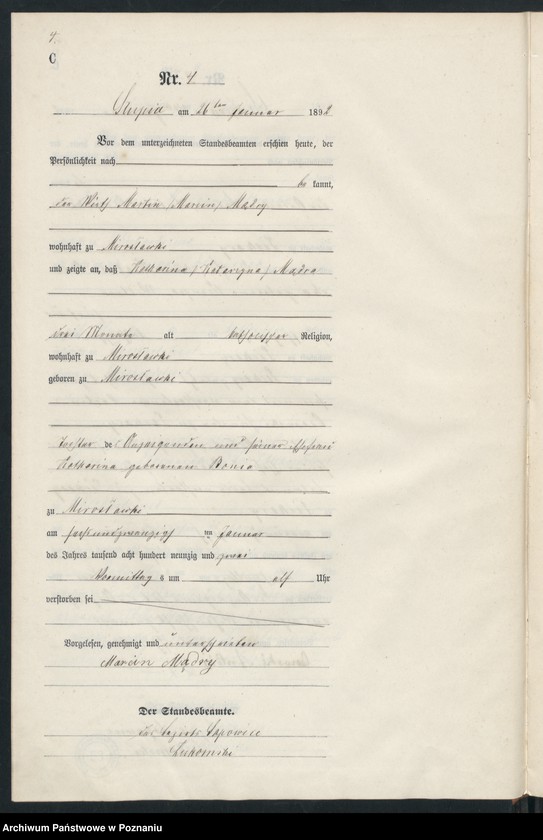 4.
C
Nr. 4
Słupia am 26ten Januar 1892
Vor dem unterzeichneten Standesbeamten erschien heute, der
Persönlichkeit nach
be kannt,
der Wirth Martin /Marcin/ Mądry
wohnhaft zu Mirosławki
und zeigte an, daß Katharina /Katarzyna/ Mądra
drei Monate alt katholischer Religion,
wohnhaft zu Mirosławki
geboren zu Mirosławki
Tochter des Anzeigenden und seiner Ehefrau
Katharina geborenen
zu Mirosławki
am sechsundzwanzigsten Januar
des Jahres tausend acht hundert neunzig und zwei
Vormittags um elf Uhr
verstorben sei
Vorgelesen, genehmigt und unterschrieben
Marcin Mądry
Der Standesbeamte.
Archiwum Państwowe w Poznaniu